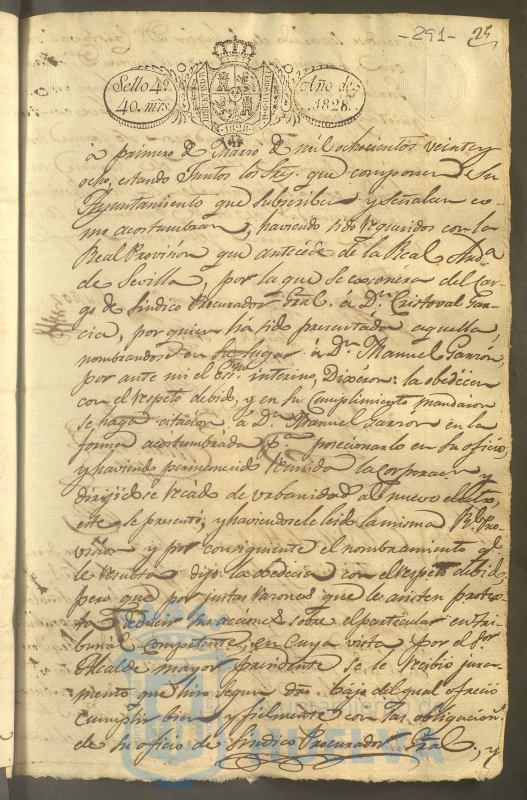 -291- 25
Sello 4º
40. mrs.
Año de
1828.
1828
a primero de Marzo de mil ochocientos veinte y
ocho, estando Juntos los Srs. que componen su
Ayuntamiento que subscriben y señalan co-
mo acostumbran, haviendo sido requeridos con la
Real Provision que antecede de la Real Auda
de Sevilla, por la que se exonera del Car-
go de Sindico Procurador Gral. a Dn. Cristoval Gar-
cia, por quien ha sido presentada aquella
nombrandose en su lugar a Dn. Manuel Garzon,
por ante mi el Esno. interino, Dixeron: la obedecen
con el respeto debido, y en su cumplimiento mandaron
se haga citacion a Dn. Manuel Garzon en la
forma acostumbrada pa. posecionarlo en su oficio
y haviendo permanecido reunida la corporacion y
dirijidose recado de urbanidad al nuevo electo
este se presentó, y haviendosele leido la misma Rl. Pro-
vision y por consiguiente el nombramiento ql.
le resulta dijo: la obedecia con el respeto debido,
pero que por justas razones que le asisten protex-
ta deducir sus acciones sobre el particular en Tri-
bunal competente, en cuya vista por el Sr.
Alcalde mayor Presidente se le recibio jura-
mento que hizo segun dro. bajo del qual ofrecio
cumplir bien y fielmente con las obligacions.
de su oficio de Sindico Procurador Gral, y
Ayuntamiento de
HUELVA